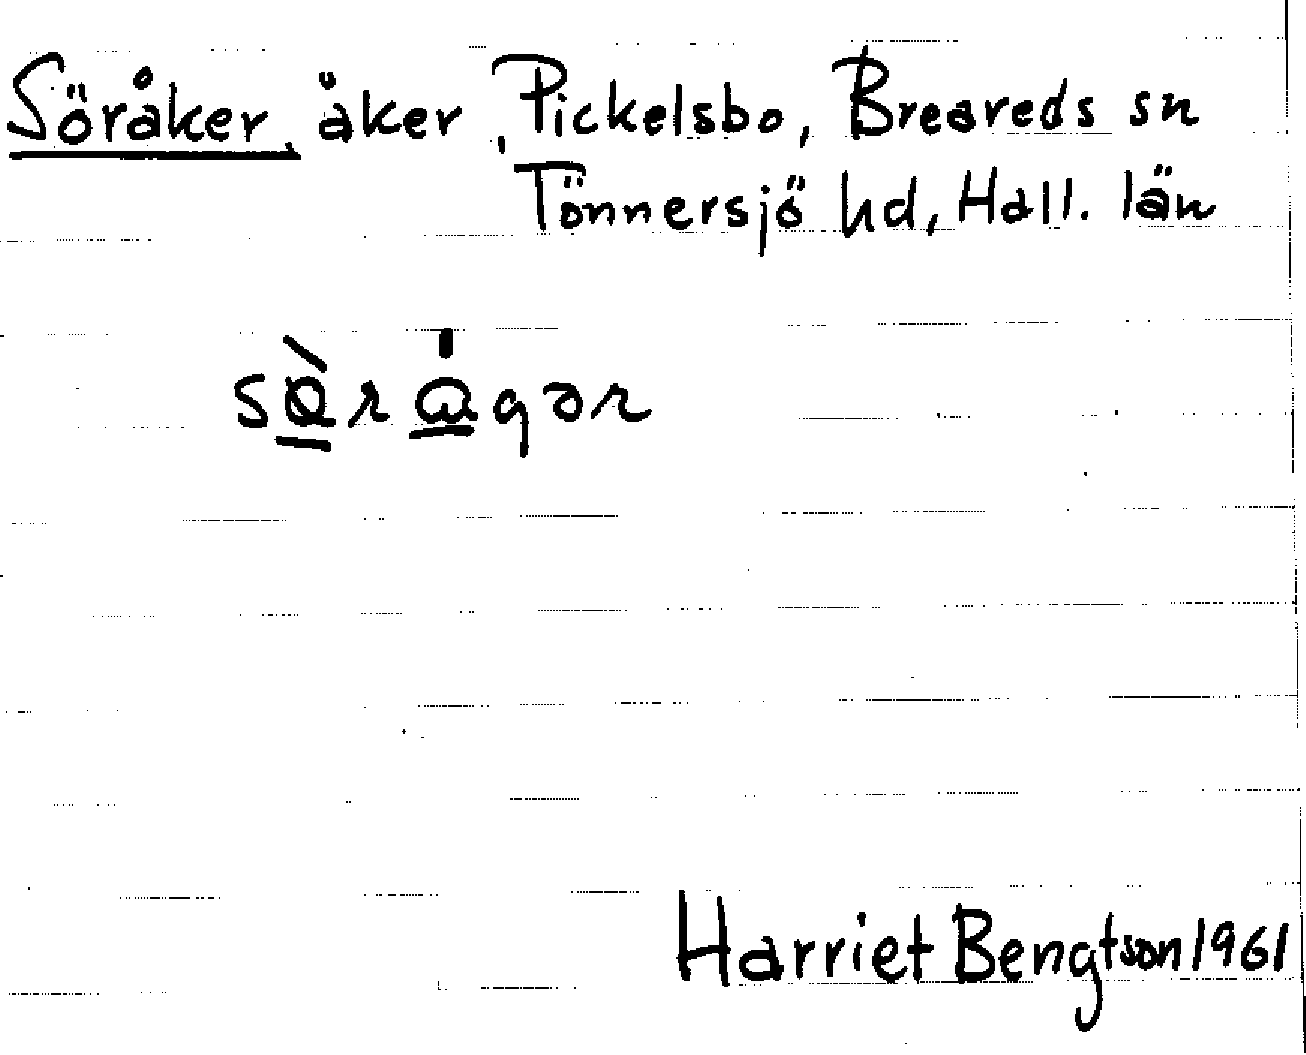 Söråker, åker, Pickelsbo, Breareds sn
Tönnersjö hd, Hall. län
Harriet Bengtson 1961